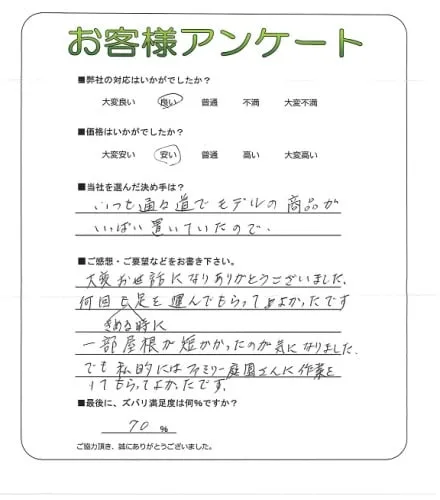 お客様アンケート
■弊社の対応はいかがでしたか？
大変良い 良い 普通 不満 大変不満
■価格はいかがでしたか？
大変安い 安い 普通 高い 大変高い
■当社を選んだ決め手は？
いつも通る道でモデルの商品が
いっぱい置いていたので。
■ご感想・ご要望などをお書き下さい。
大変お世話になりありがとうございました。
何回も足を運んでもらってよかったです
きめる時に
一部屋根が短かかったのが気になりました。
でも私的にはファミリー庭園さんに作業を
してもらってよかったです。
■最後に、ズバリ満足度は何%ですか？
70 %
ご協力頂き、誠にありがとうございました。